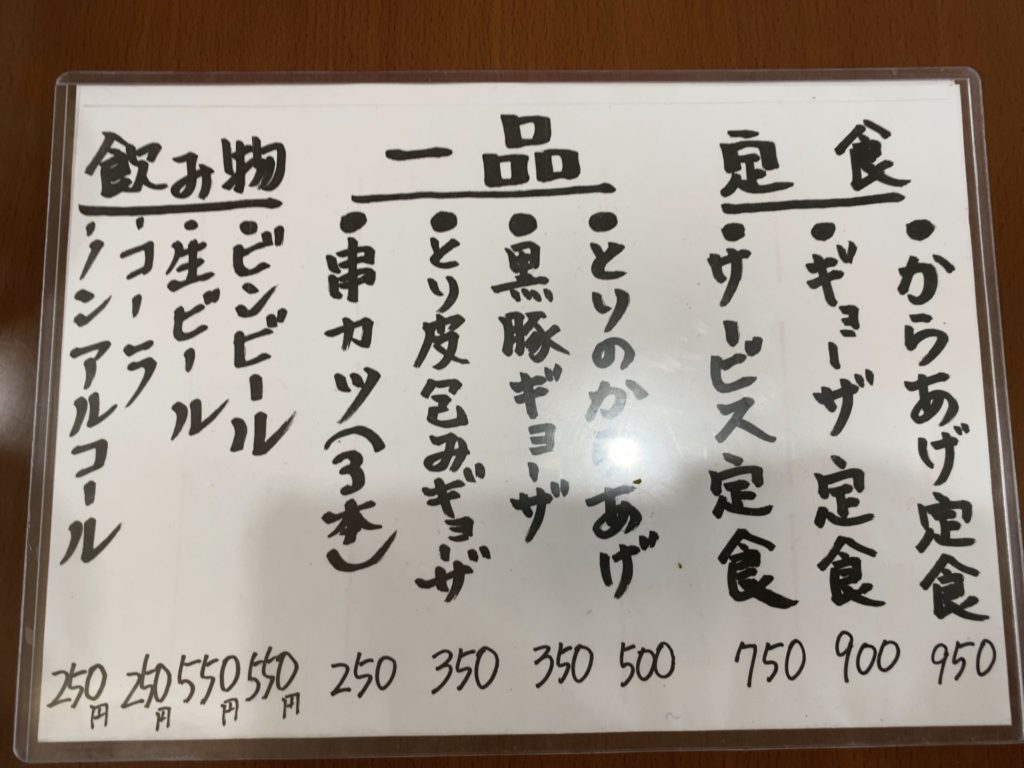 定食
・からあげ定食 950
・ギョーザ定食 900
・サービス定食 750
一品
・とりのからあげ 500
・黒豚ギョーザ 350
・とり皮包みギョーザ 350
・串カツ(3本) 250
飲み物
・ビンビール 550円
・生ビール 550円
・コーラ 250円
・ノンアルコール 250円